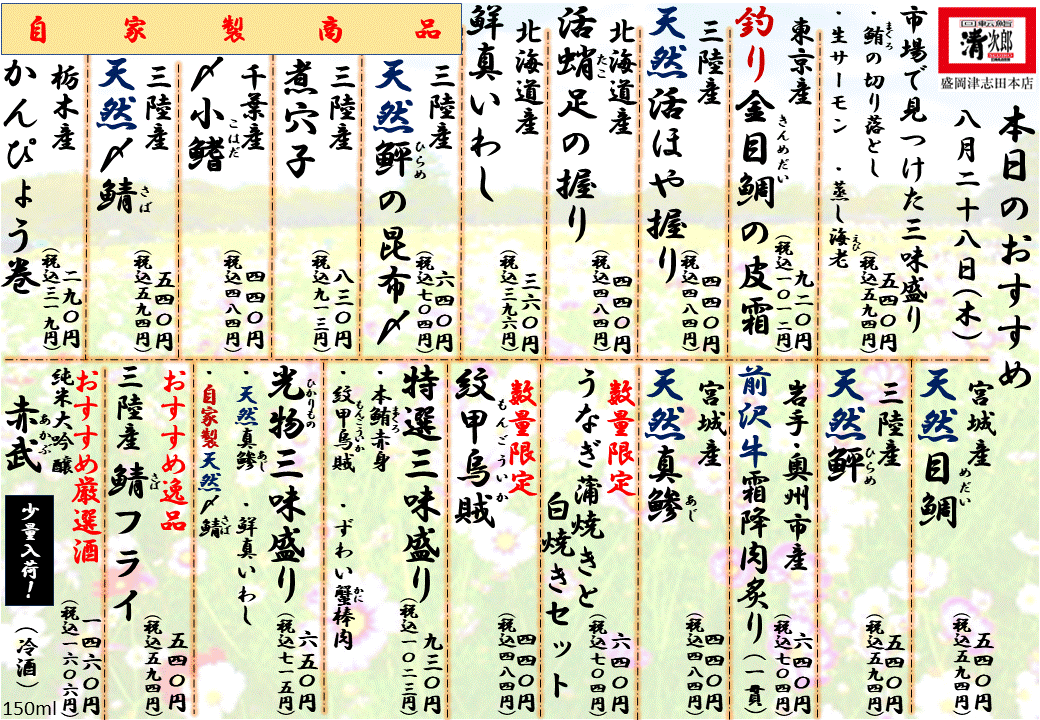 回転鮨
清次郎
盛岡津志田本店
本日のおすすめ
八月二十八日(木)
市場で見つけた三味盛り
・鮪の切り落とし
まぐろ
・蒸し海老
えび
・生サーモン
五四〇円
(税込五九四円)
東京産
釣り金目鯛の皮霜
きんめだい
九二〇円
(税込一〇一二円)
三陸産
天然活ほや握り
四四〇円
(税込四八四円)
北海道産
活蛸足の握り
たこ
四四〇円
(税込四八四円)
北海道産
鮮真いわし
三六〇円
(税込三九六円)
自家製商品
三陸産
天然鮃の昆布〆
ひらめ
六四〇円
(税込七〇四円)
三陸産
煮穴子
八三〇円
(税込九一三円)
千葉産
〆小鰭
こはだ
四四〇円
(税込四八四円)
三陸産
天然〆鯖
さば
五四〇円
(税込五九四円)
栃木産
かんぴょう巻
二九〇円
(税込三一九円)
宮城産
天然目鯛
めだい
五四〇円
(税込五九四円)
三陸産
天然鮃
ひらめ
五四〇円
(税込五九四円)
岩手・奥州市産
前沢牛霜降肉炙り(一貫)
六四〇円
(税込七〇四円)
宮城産
天然真鯵
あじ
四四〇円
(税込四八四円)
数量限定
うなぎ蒲焼きと
白焼きセット
六四〇円
(税込七〇四円)
数量限定
紋甲烏賊
もんごういか
四四〇円
(税込四八四円)
特選三味盛り
・本鮪赤身
まぐろ
・ずわい蟹棒肉
かに
・紋甲烏賊
もんごういか
九三〇円
(税込一〇二三円)
光物三味盛り
ひかりもの
・天然真鯵
あじ
・鮮真いわし
・自家製天然〆鯖
さば
六五〇円
(税込七一五円)
おすすめ逸品
三陸産 鯖フライ
さば
五四〇円
(税込五九四円)
おすすめ厳選酒
純米大吟醸
赤武
あかぶ
少量入荷!
(冷酒)
一四六〇円
(税込一六〇六円)
150ml